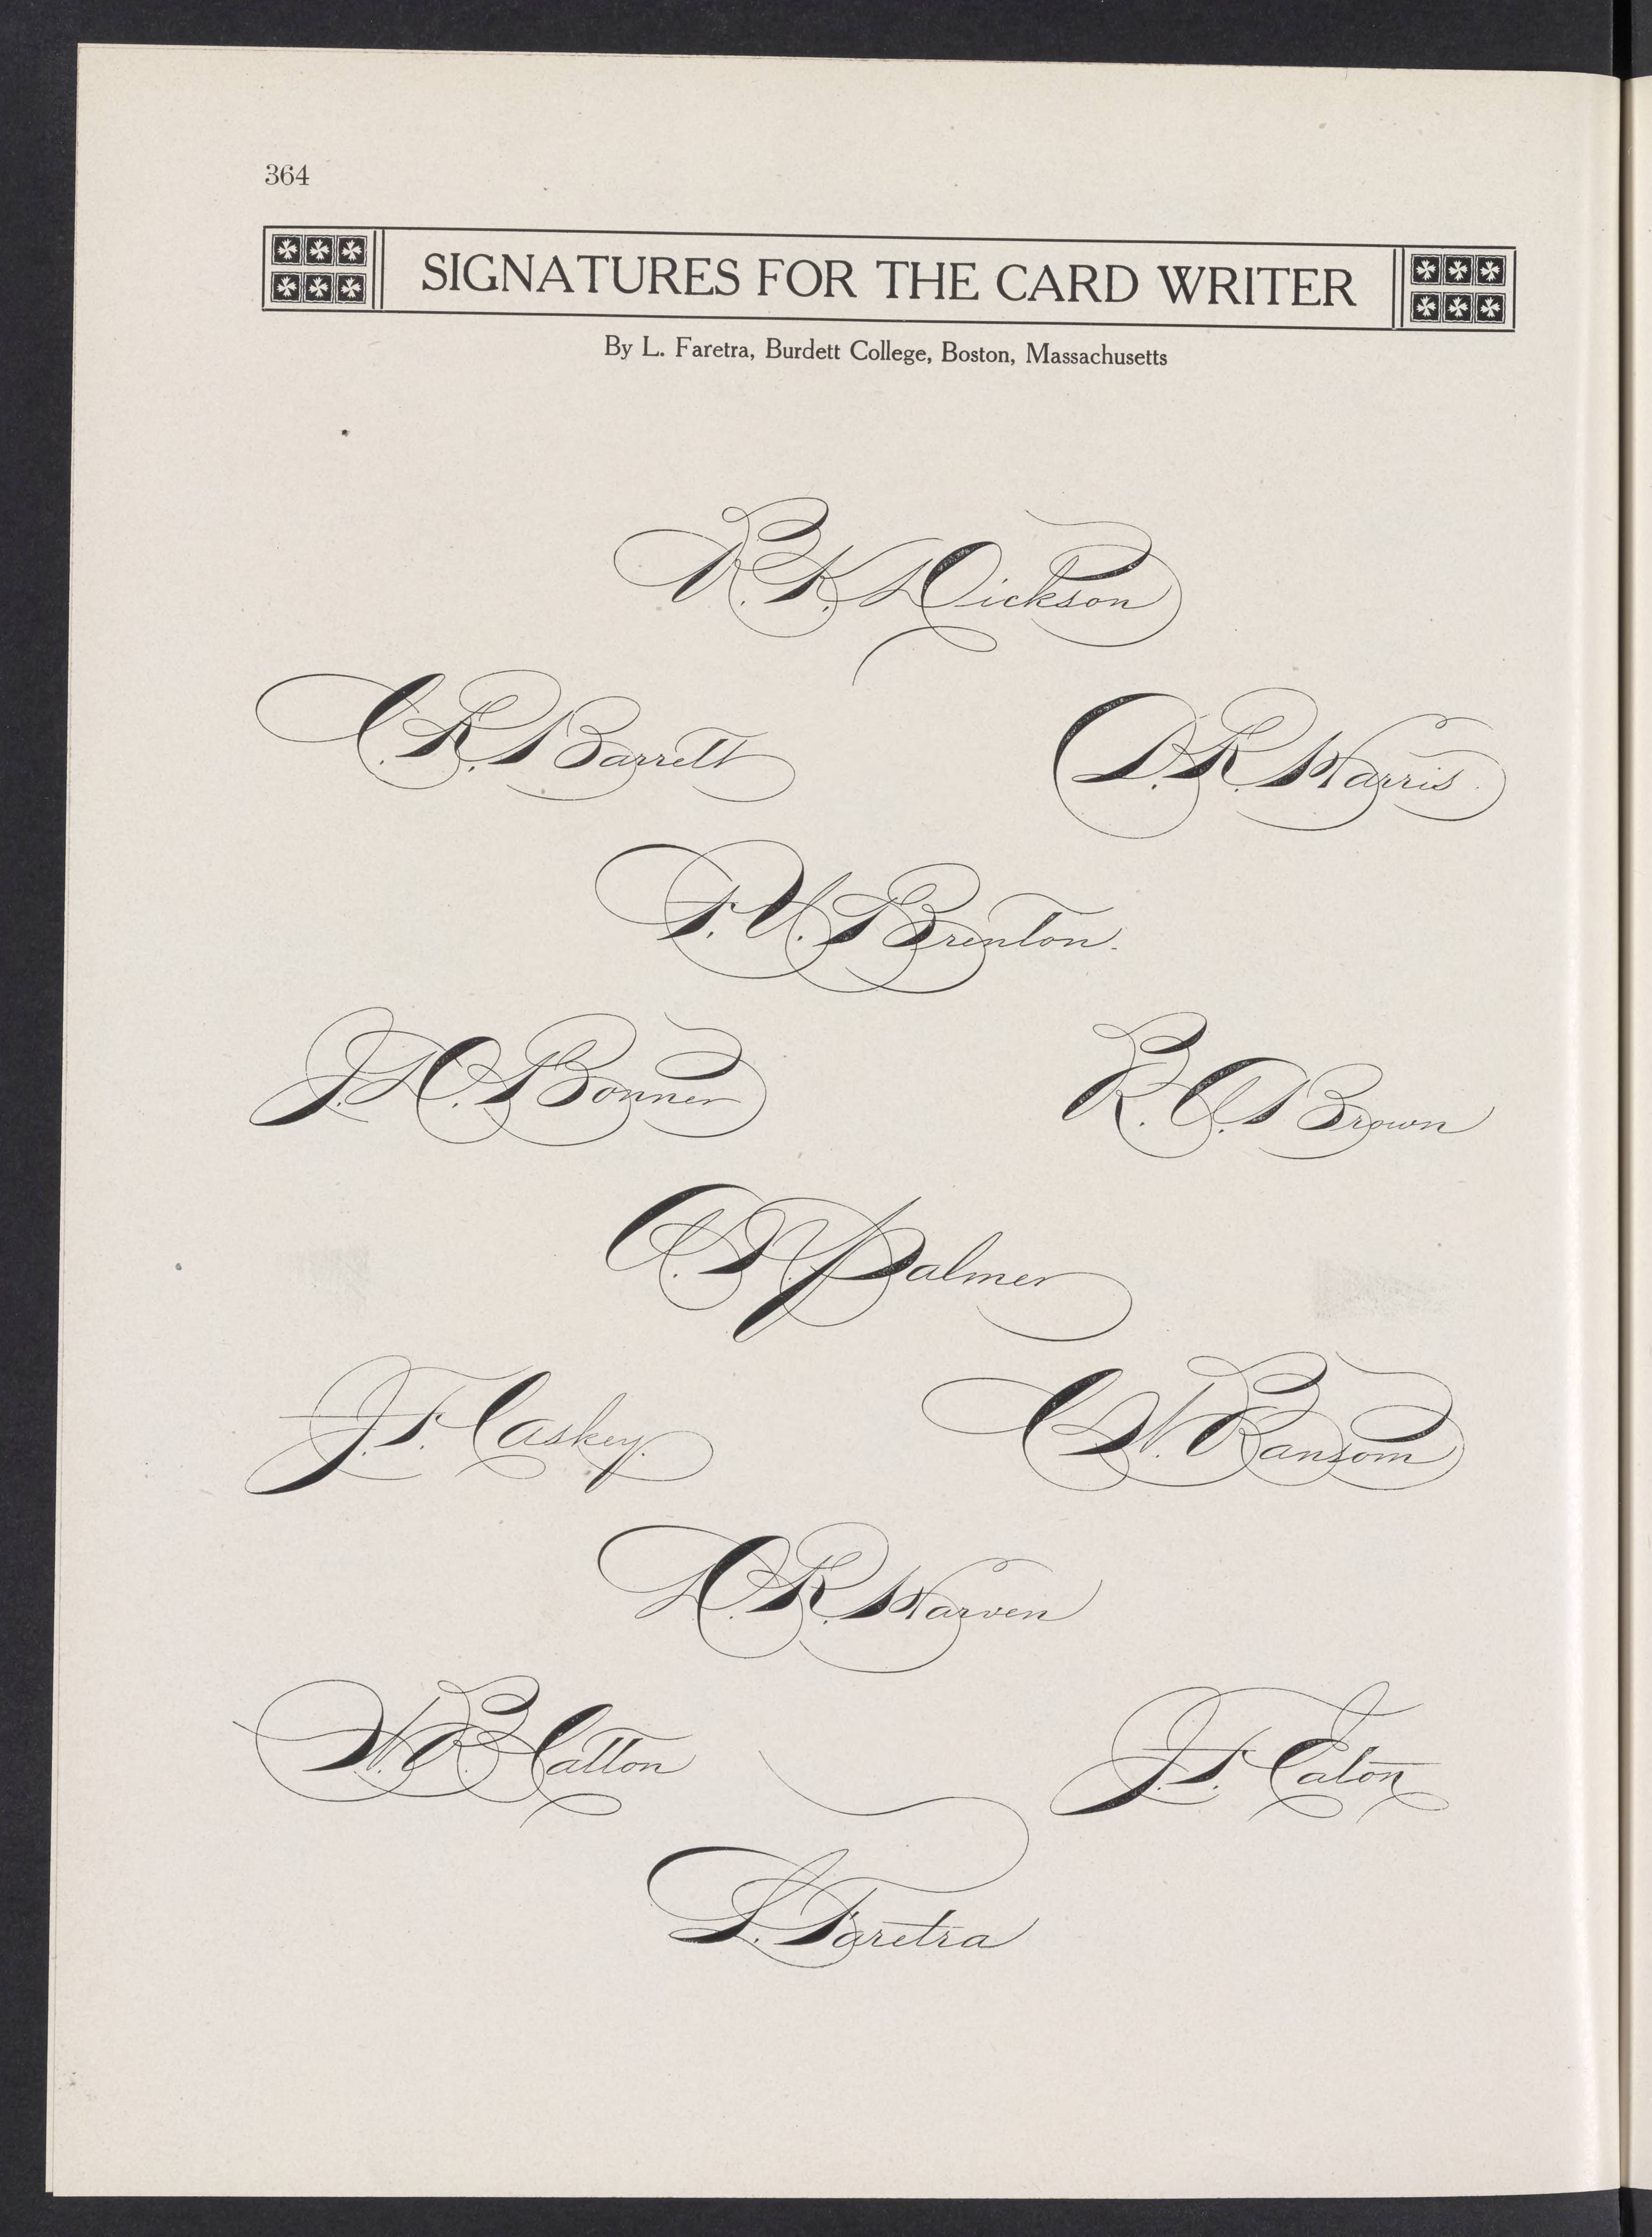 364
SIGNATURES FOR THE CARD WRITER
By L. Faretra, Burdett College, Boston, Massachusetts
B. K. Dickson
C. R. Barrett
D. R. Harris
F. U. Brenton
J. O. Bonner
R. O. Brown
Palmer
J. F. Caskey
C. W. Ransom
O. R. Harven
W. B. Catton
J. F. Eaton
L. Faretra